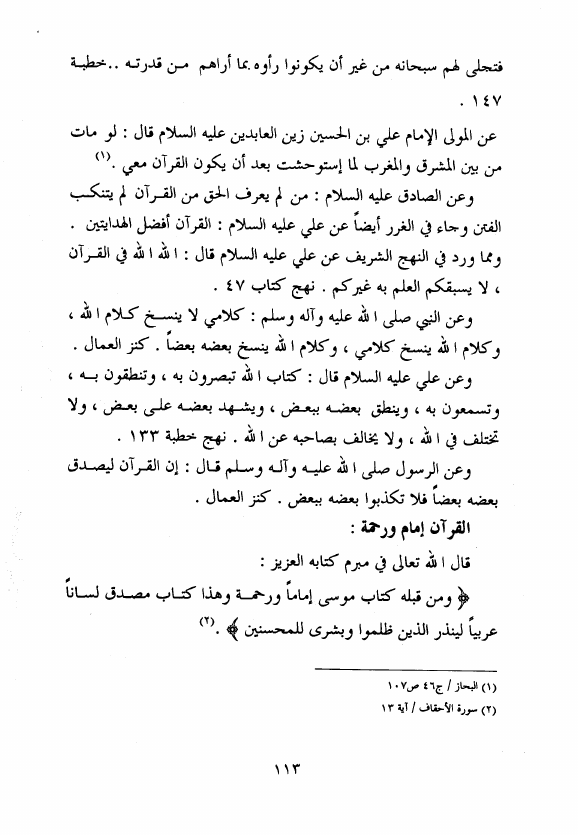 فتجلى لهم سبحانه من غير أن يكونوا رأوه بما أراهم من قدرته ..خطبة
١٤٧ .
عن المولى الإمام علي بن الحسين زين العابدين عليه السلام قال : لو مات
من بين المشرق والمغرب لما إستوحشت بعد أن يكون القرآن معي .(١)
وعن الصادق عليه السلام : من لم يعرف الحق من القرآن لم يتنكب
الفتن وجاء في الغرر أيضاً عن علي عليه السلام : القرآن أفضل الهدايتين .
ومما ورد في النهج الشريف عن علي عليه السلام قال : الله الله في القرآن
، لا يسبقكم العلم به غيركم . نهج كتاب ٤٧ .
وعن النبي صلى الله عليه وآله وسلم : كلامي لا ينسخ كلام الله ،
وكلام الله ينسخ كلامي ، وكلام الله ينسخ بعضه بعضاً . كنز العمال .
وعن علي عليه السلام قال : كتاب الله تبصرون به ، وتنطقون به ،
وتسمعون به ، وينطق بعضه ببعض ، ويشهد بعضه على بعض ، ولا
تختلف في الله ، ولا يخالف بصاحبه عن الله . نهج خطبة ١٣٣ .
وعن الرسول صلى الله عليه وآله وسلم قال : إن القرآن ليصدق
بعضه بعضاً فلا تكذبوا بعضه ببعض . كنز العمال .
القرآن إمام ورحمة :
قال الله تعالى في مبرم كتابه العزيز :
﴿ ومن قبله كتاب موسى إماماً ورحمة وهذا كتاب مصدق لساناً
عربياً لينذر الذين ظلموا وبشرى للمحسنين ﴾ .(٢)
(١) البحاز / ج٤٦ ص١٠٧
(٢) سورة الأحقاف / آية ١٣
١١٣